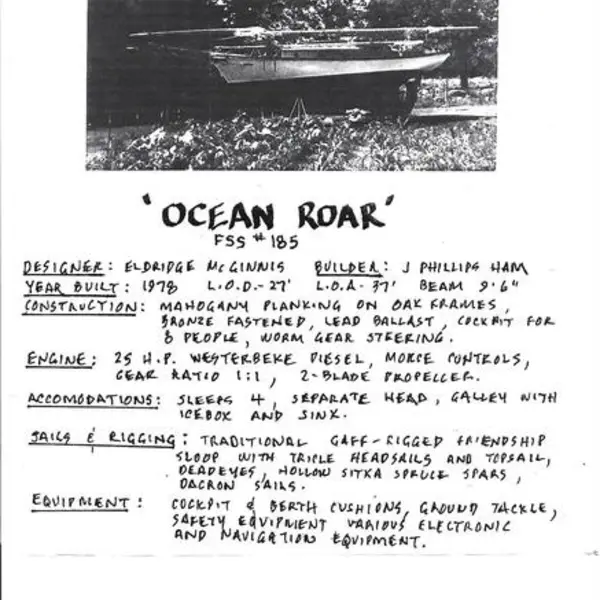 'OCEAN ROAR'
FSS #185
DESIGNER: ELDRIDGE McGINNIS BUILDER: J PHILLIPS HAM
YEAR BUILT: 1978 L.O.D.-27' L.O.A-37' BEAM 9'6"
CONSTRUCTION: MAHOGANY PLANKING ON OAK FRAMES,
BRONZE FASTENED, LEAD BALLAST, COCKPIT FOR
8 PEOPLE, WORM GEAR STEERING.
ENGINE: 25 H.P. WESTERBEKE DIESEL, MORCE CONTROLS,
GEAR RATIO 1:1, 2-BLADE PROPELLER.
ACCOMODATIONS: SLEEPS 4, SEPARATE HEAD, GALLEY WITH
ICEBOX AND SINK.
SAILS & RIGGING: TRADITIONAL GAFF-RIGGED FRIENDSHIP
SLOOP WITH TRIPLE HEADSAILS AND TOPSAIL,
DEADEYES, HOLLOW SITKA SPRUCE SPARS,
DACRON SAILS.
EQUIPMENT: COCKPIT & BERTH CUSHIONS, GROUND TACKLE,
SAFETY EQUIPMENT VARIOUS ELECTRONIC
AND NAVIGATION EQUIPMENT.